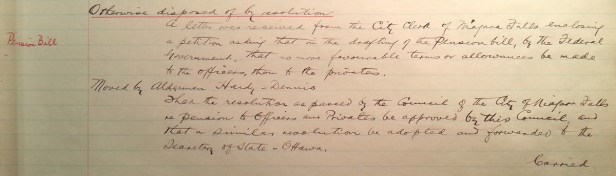 Otherwise disposed of by resolution
Pension Bill
A letter was received from the City Clerk of Niagara Falls enclosing
a petition asking that in the drafting of the Pension bill, by the Federal
Government, that no more favourable terms or allowances be made
to the officers, than to the privates.
Moved by Alderman Hardy - Dennis
That the resolution as passed by the Council of the City of Niagara Falls
re pension to Officers and Privates be approved by this Council, and
that a similar resolution be adopted and forwarded to the
Secretary of State - Ottawa.
Carried